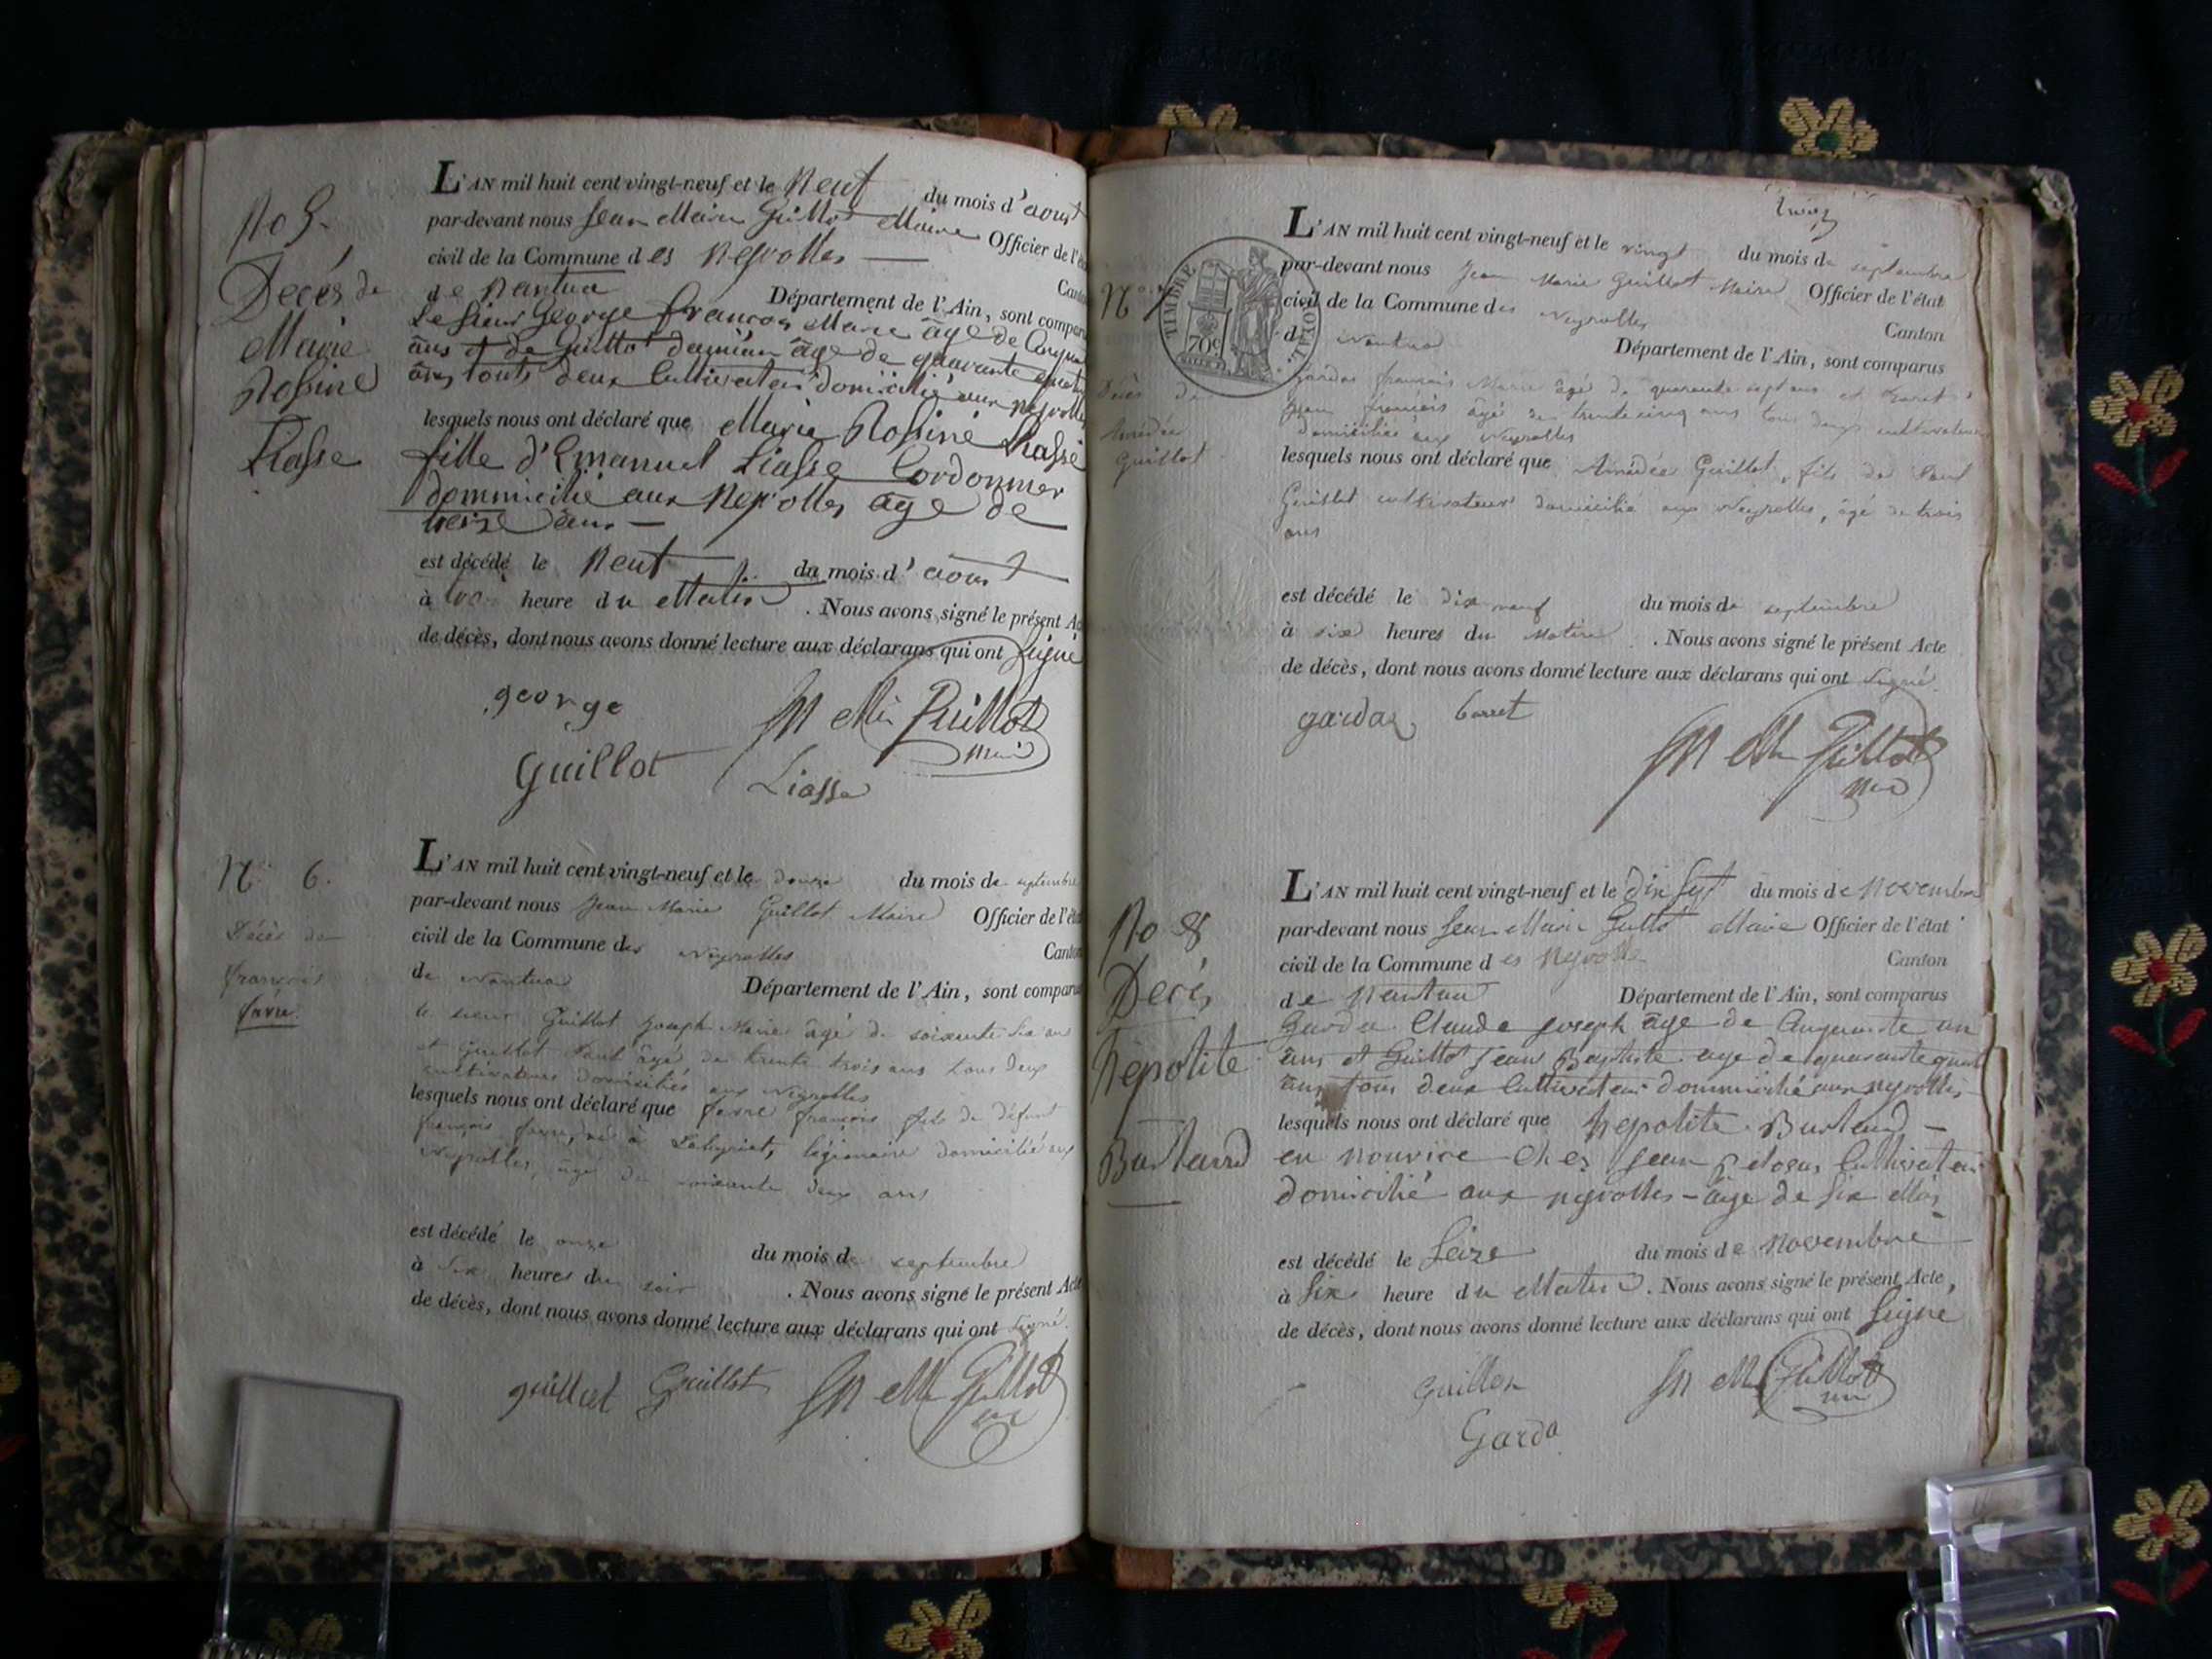 No 5.
Decés de
Marie
Rosine
Liasse
L'AN mil huit cent vingt-neuf et le Neuf du mois d'aoust
par-devant nous Jean Marie Guillot Maire Officier de l'éta
civil de la Commune des Neyrolles Canton
de Nantua Département de l'Ain, sont comparu
Le sieur George francois Marie âge de
ans et de Guillot damien âge de quarante quatre
ans touts deux Cultivateur domicilié aux neyrolles
lesquels nous ont déclaré que Marie Rosine Liasse
fille d'Emanuel Liasse Cordonnier
dommicilié aux Neyrolles age de
treize ans
est décédé le Neuf du mois d'aoust
à heure du Matin . Nous avons signé le présent Ac
de décès, dont nous avons donné lecture aux déclarans qui ont signé
george Jn Mie Guillot
Maire
Guillot Liasse
No 6.
Décès de
françois
favre.
L'AN mil huit cent vingt-neuf et le douze du mois de septembre
par-devant nous Jean Marie Guillot Maire Officier de l'état
civil de la Commune des Neyrolles Canton
de Nantua Département de l'Ain, sont comparus
le sieur Guillot Joseph Marie âgé de soixante six ans
et Guillot Paul âgé de trente trois ans tous deux
cultivateurs domiciliés aux Neyrolles
lesquels nous ont déclaré que favre françois fils de défunt
françois favre, né à légionaire domicilié aux
Neyrolles, âgé de soixante deux ans
est décédé le onze du mois de septembre
à six heures du soir . Nous avons signé le présent Acte
de décès, dont nous avons donné lecture aux déclarans qui ont signé.
guillot Guillot Jn Mie Guillot
TIMBRE ROYAL
70c
No 7
Décès de
Amédée
Guillot
L'AN mil huit cent vingt-neuf et le vingt du mois de septembre
par-devant nous Jean Marie Guillot Maire Officier de l'état
civil de la Commune des Neyrolles Canton
de Nantua Département de l'Ain, sont comparus
Gardas françois Marie âgé de quarante sept ans et
Jean françois âgé de trente cinq ans tous deux cultivateurs
domiciliés aux Neyrolles
lesquels nous ont déclaré que Amédée Guillot, fils de Paul
Guillot cultivateur domicilié aux Neyrolles, âgé de trois
ans
est décédé le dix neuf du mois de septembre
à six heures du Matin . Nous avons signé le présent Acte
de décès, dont nous avons donné lecture aux déclarans qui ont signé.
gardas Jn Mie Guillot
No 8
Decés
hepolite
Bastard
L'AN mil huit cent vingt-neuf et le dix sept du mois de Novembre
par-devant nous Jean Marie Guillot Maire Officier de l'état
civil de la Commune des Neyrolle Canton
de Nantua Département de l'Ain, sont comparus
Garda Claude joseph âge de Cinquante un
ans et Guillot jean Baptiste age de quarante quatre
ans tous deux Cultivateur dommicilié aux neyrolles
lesquels nous ont déclaré que hepolite Bastard
en nourice chez jean Cultivateur
domicilié aux neyrolles âge de six Mois
est décédé le Seize du mois de Novembre
à Six heure du Matin . Nous avons signé le présent Acte,
de décès, dont nous avons donné lecture aux déclarans qui ont signé
Guillot Jn Mie Guillot
Garda